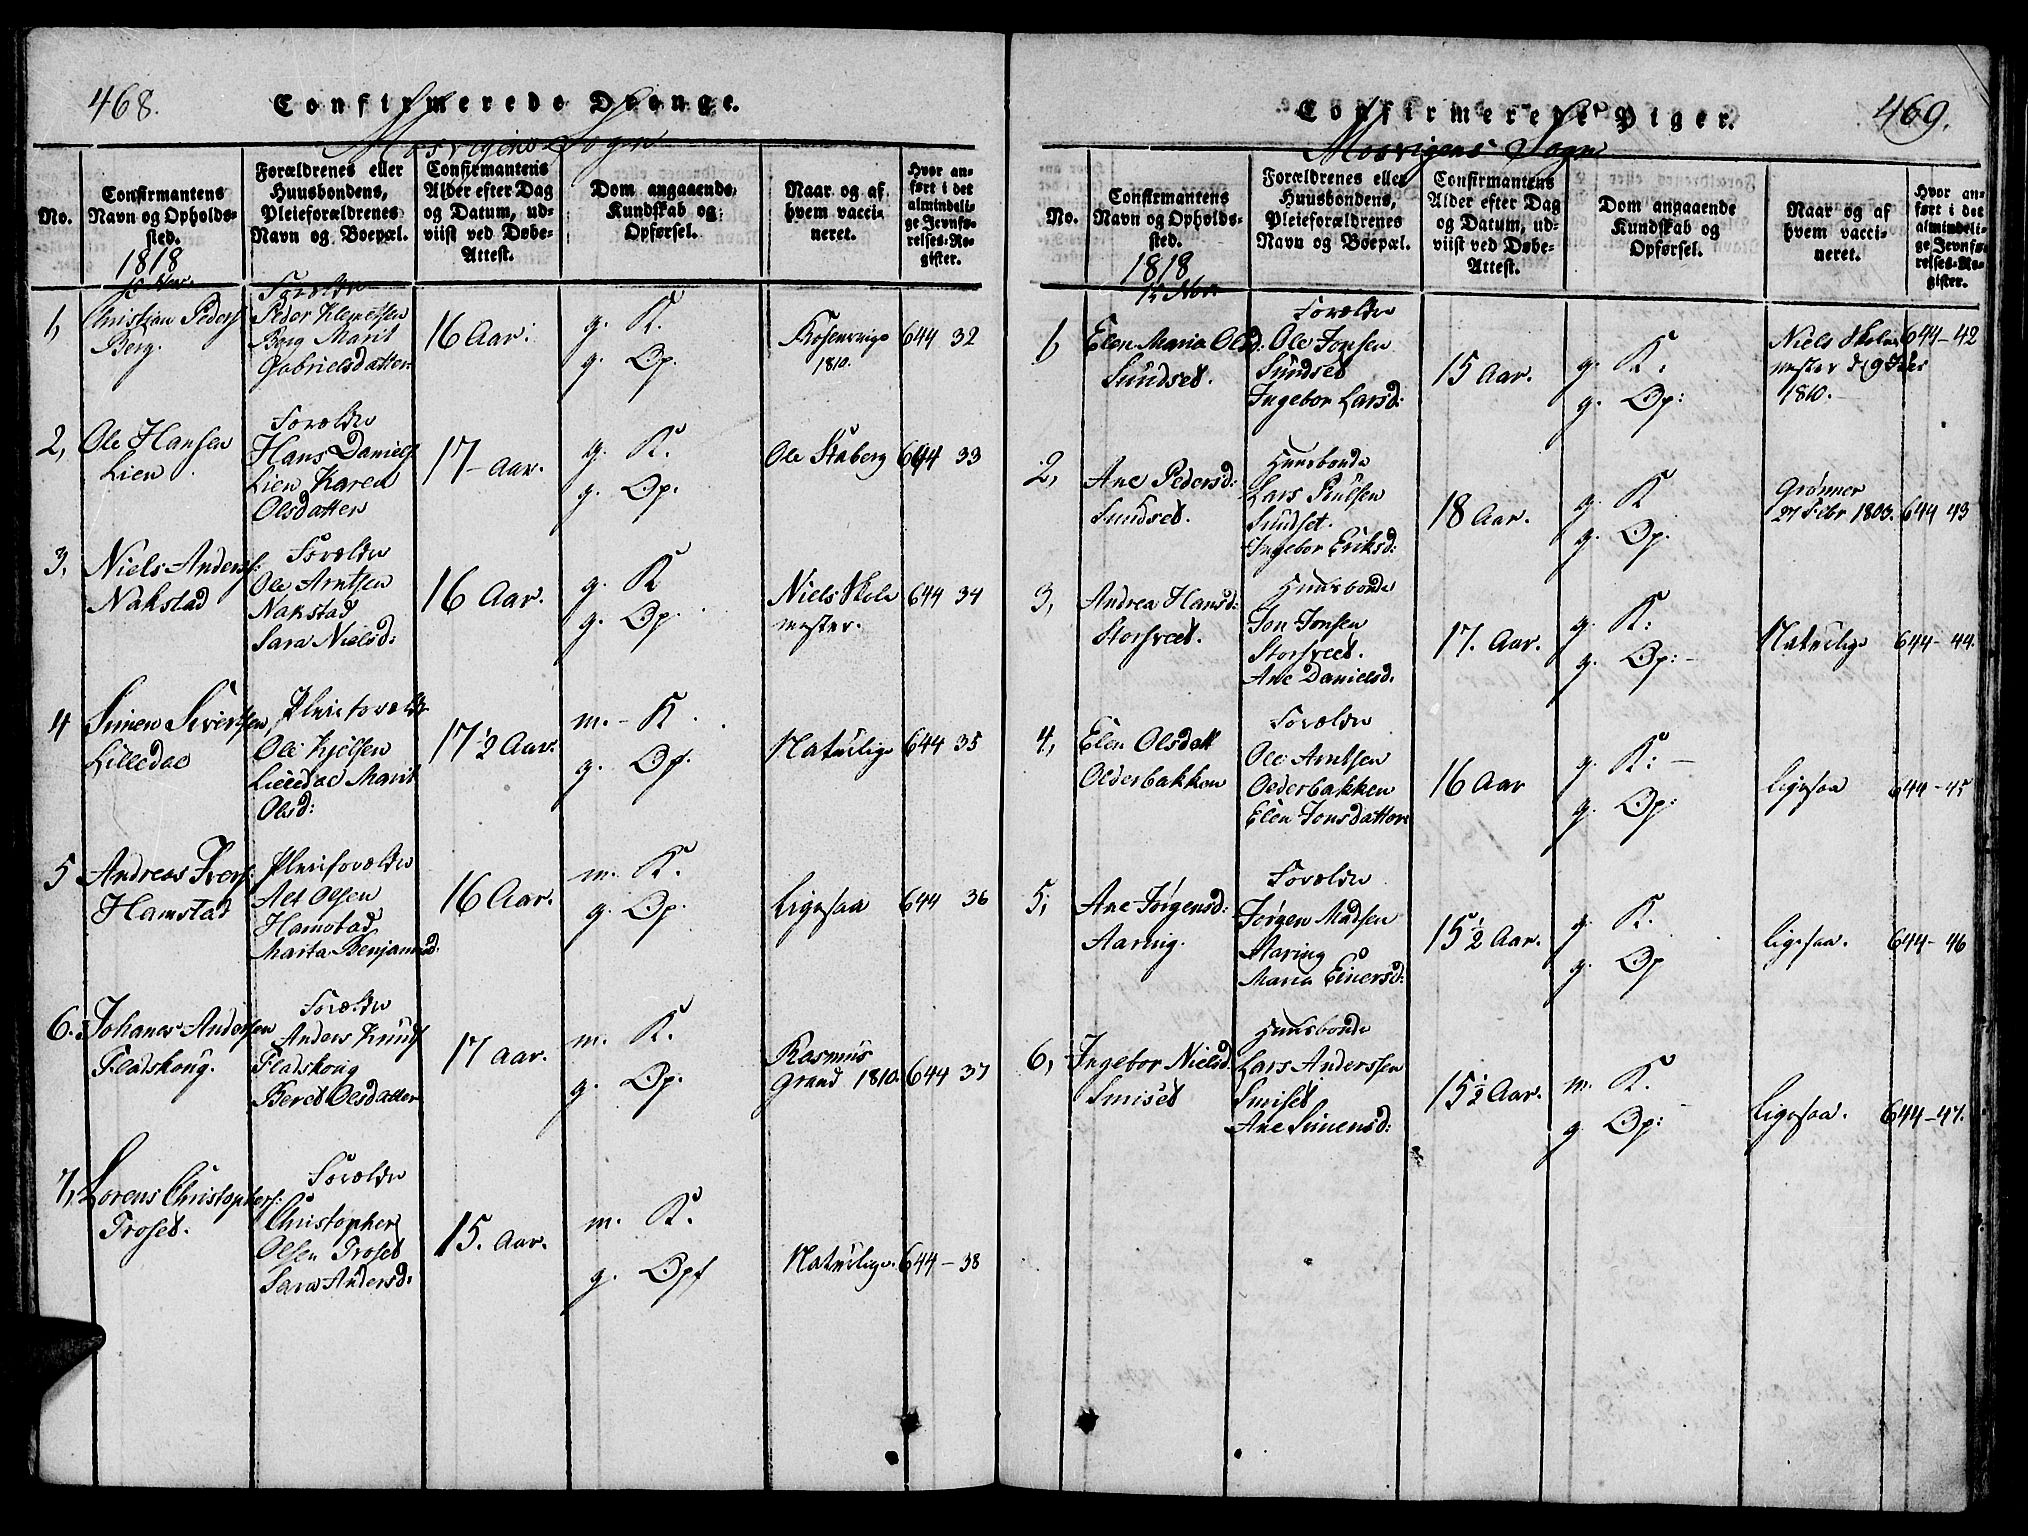 468.
Confirmerede Drenge.
Mosvigens Sogn
No.
Confirmantens Navn og Opholds-
sted.
Forældrenes eller
Huusbondens,
Pleieforældrenes
Navn og Boepæl.
Confirmantens
Alder efter Dag
og Datum, ud-
viist ved Døbe-
Attest.
Dom angaaende
Kundskab og
Opførsel.
Naar og af
hvem vacci-
neret.
Hvor an-
ført i det
almindeli-
ge Jevnfø-
relses-Re-
gister.
1818
15 Nov.
1, Christian Peders
Berg.
Forældre
Peder Klemetsen
Berg Marit
Gabrielsdatter
16 Aar:
g. K.
g. Op.
Rosenvinge
1810.
644 32
2, Ole Hansen
Lien
Forældre
Hans Daniels
Lien Karen
Olsdatter
17 Aar.
g. K.
g. Op.
Ole Staberg
644 33
3, Niels Anders:
Nakstad
Forældre
Ole Arntsen
Nakstad
Sara Nielsd:
16 Aar.
g. K
g. Op.
Niels Skole
mester.
644 34
4 Simen Sivertsen
Lilledal
Pleieforældre
Ole Kjelsen
Lilledal Marit
Olsd:
17 1/2 Aar.
m. K.
g. Op.
Naturlige
644 35
5 Andreas Ivers:
Hamstad
Pleieforældre
Alt Olsen
Hamstad
Marta Benjamind.
16 Aar.
m. K.
g. Op.
Ligesaa
644 36
6. Johanes Andersen
Fladskoug.
Forældre
Anders Knuds
Fladskoug
Beret Olsdatter
17 Aar.
m. K.
g. Op.
Rasmus
Grand 1810.
644 37
7, Lorens Christophers:
Troset.
Forældre
Christopher
Olsen Troset
Sara Andersd:
15. Aar.
m. K.
g. Opf
Naturlige.
644-38
469.
Confirmerede Piger.
Mosvigens Sogn
No.
Confirmantens
Navn og Opholds-
sted.
Forældrenes eller
Huusbondens,
Pleieforældrenes
Navn og Boepæl.
Confirmantens
Alder efter Dag
og Datum, ud-
viist ved Døbe-
Attest.
Dom angaaende
Kundskab og
Opførsel.
Naar og af
hvem vacci-
neret.
Hvor an-
ført i det
almindeli-
ge Jevnfø-
relses-Re-
gister.
1818
15 Nov.
1 Elen Maria Olsd:
Sundset.
Forældre
Ole Jonsen
Sundset
Ingebor Larsd:
15 Aar.
g. K.
g. Op:
Niels Skole
mester
1810.
644-42
2, Ane Pedersd:
Sundset.
Huusbonde
Lars Paulsen
Sundset.
Ingebor Eriksd:
18 Aar.
g. K
g. Op.
Grønner
27 Febr 1803.
644 43
3, Andrea Hansd:
Storsveet.
Huusbonde
Jon Jonsen
Storsveet.
Ane Danielsd.
17. Aar.
g. K:
g. Op:
Naturlige
644-44.
4, Elen Olsdatt
Olderbakken
Forældre
Ole Arntsen
Olderbakken
Elen Jonsdatter
16 Aar
g. K:
g. Op:
ligesaa
644-45
5, Ane Jørgensd:
Aaring.
Forældre
Jørgen Madsen
Aaring
Maria Einersd:
15 1/2 Aar.
g. K.
g. Op
ligesaa.
644-46
6, Ingebor Nielsd.
Smiset
Huusbonde
Lars Anderssen
Smiset
Ane Simensd:
15 1/2 Aar.
m. K.
g Op:
Ligesaa.
644-47.